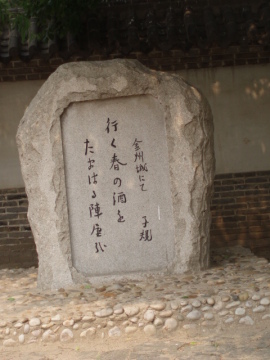 金州城にて
子規
行く春の酒を
たまはる陣屋哉